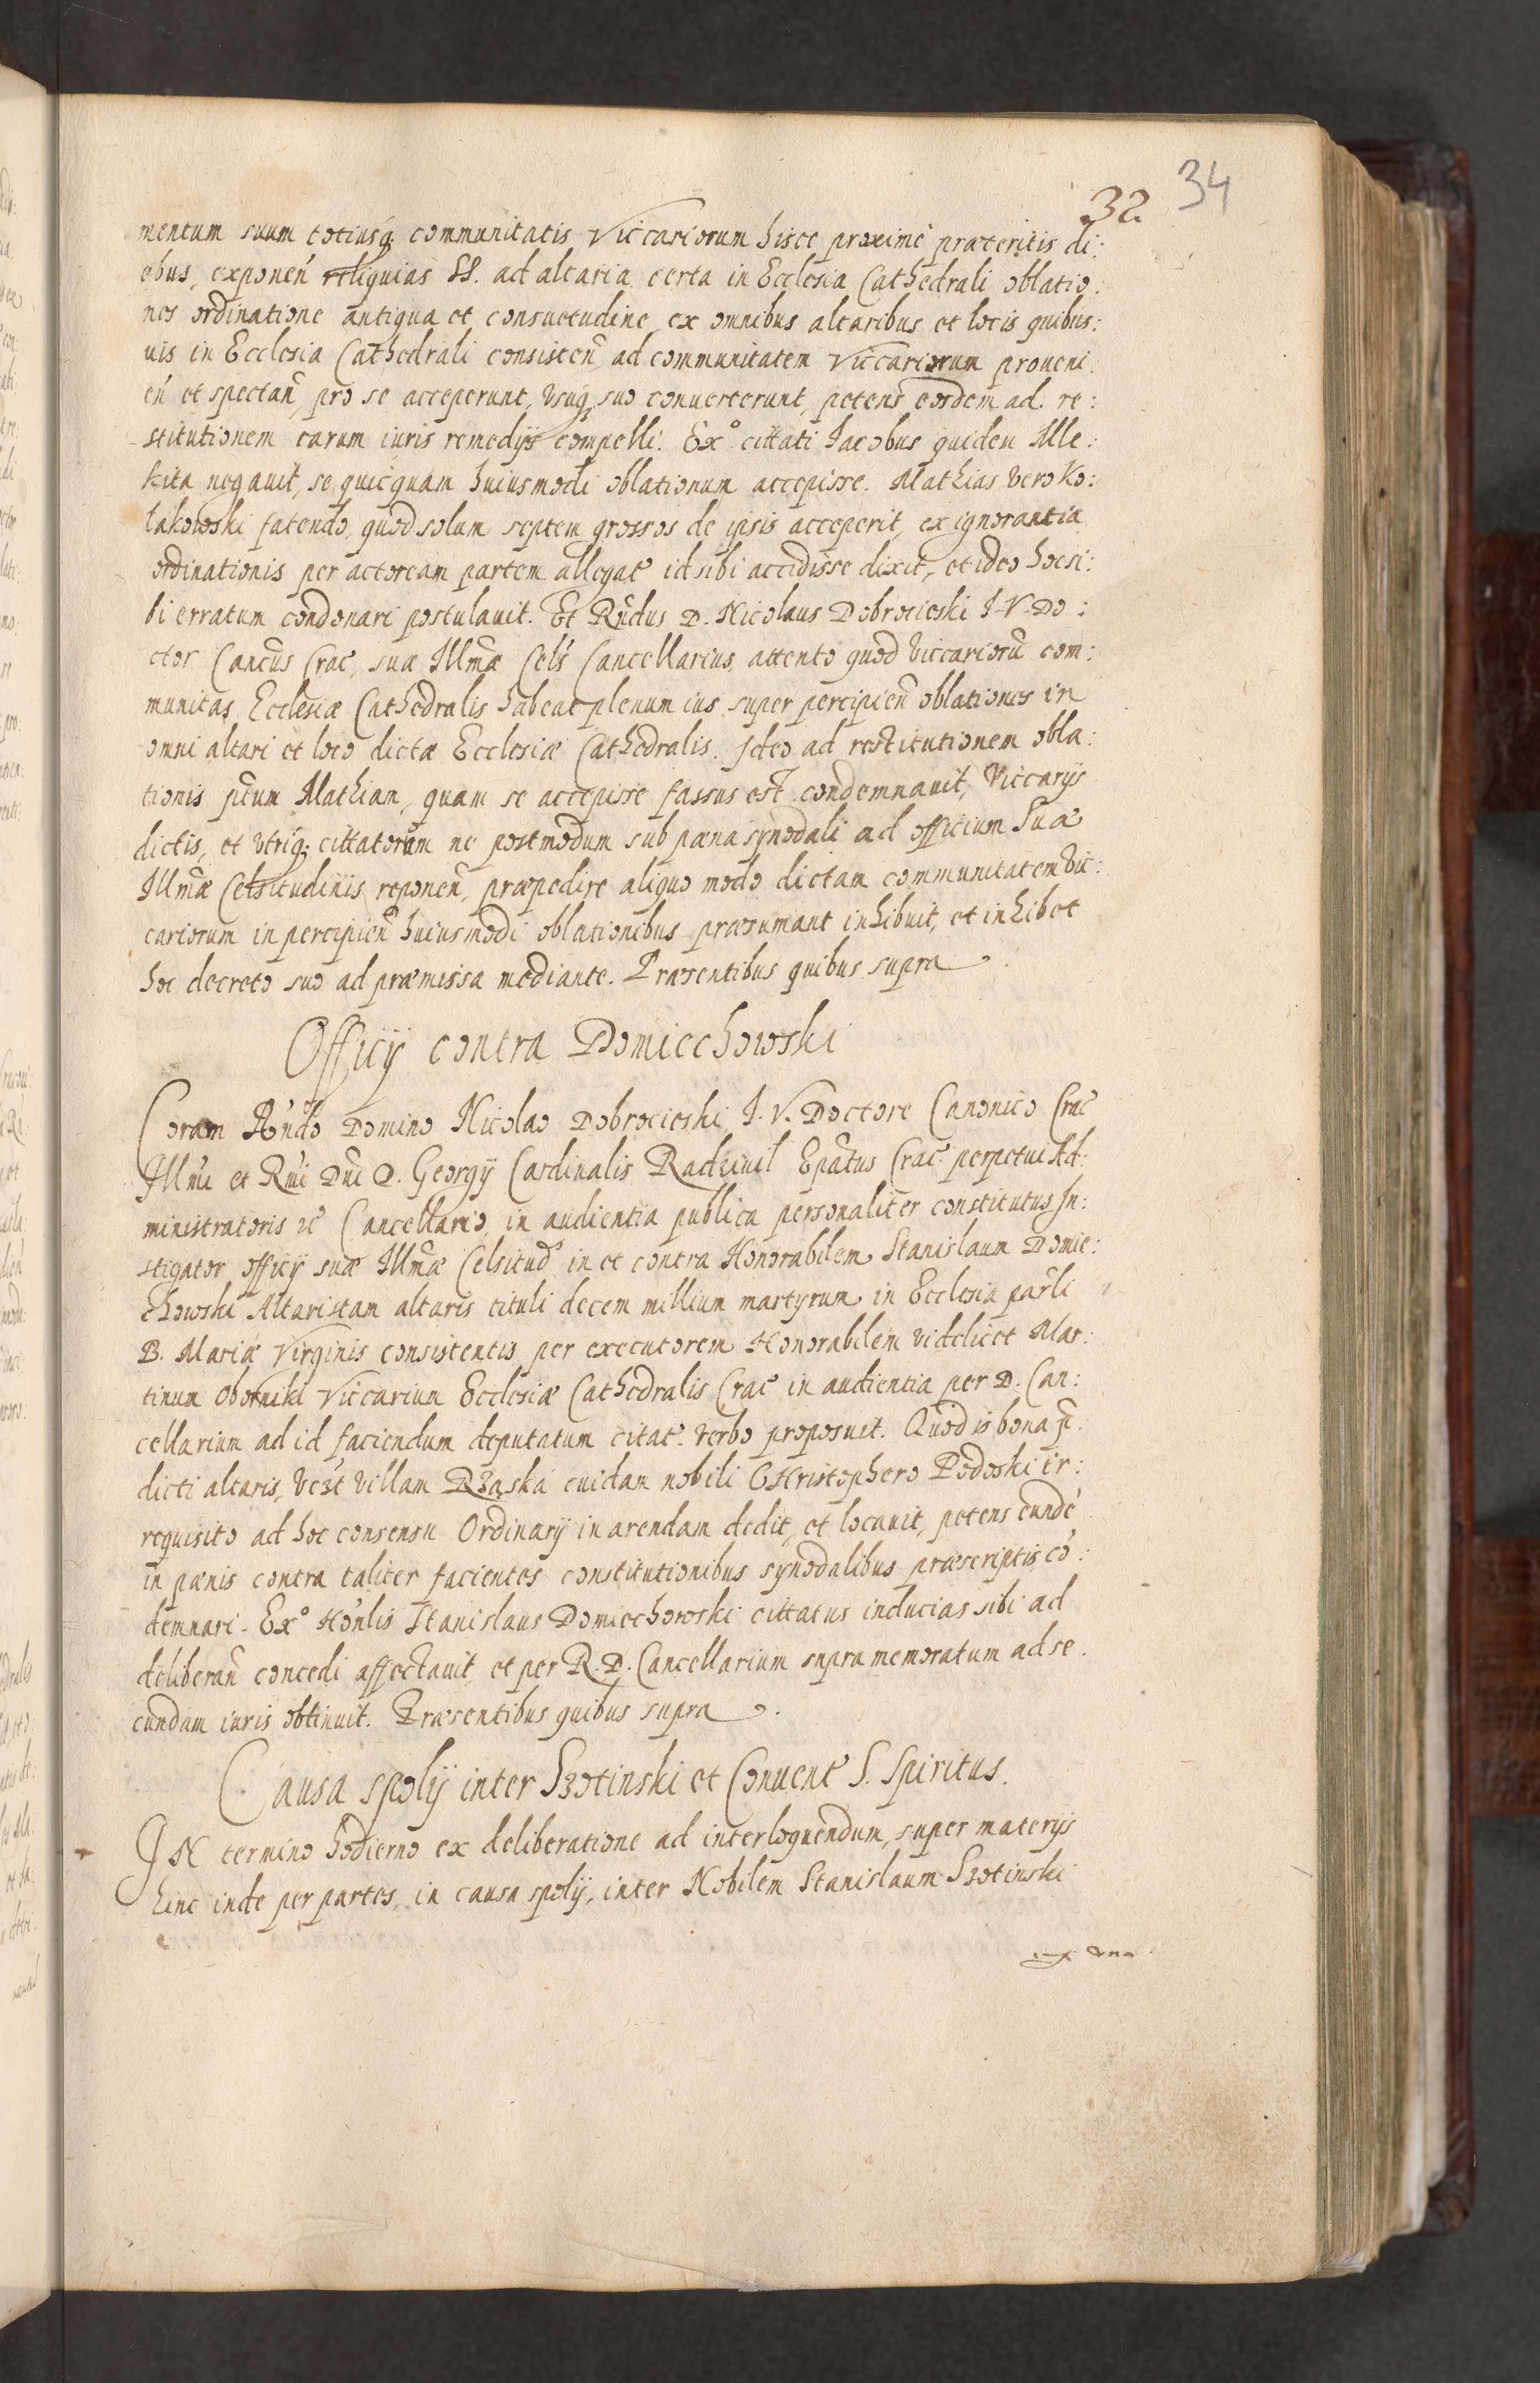 32 34
mentum suum totiusq; communitatis Viccariorum hisce proximè praeteritis di:
ebus, exponeñ reliquias SS. ad altaria certa in Ecclesia Cathedrali oblatio:
nes ordinatione antiqua et consuetudine ex omnibus altaribus et locis quibus:
uis in Ecclesia Cathedrali consisteñ, ad communitatem Viccariorum proueni:
eñ et spectañ, pro se acceperunt, vsuq; suo conuerterunt, petens eosdem ad re:
stitutionem earum iuris remedijs compelli. Exº cittati Jacobus quidem Mle:
kita negauit, se quicquam huiusmodi oblationum accepisse. Mathias vero Ko:
lakowski fatendo, quod solum septem grossos de ipsis acceperit, ex ignorantia
ordinationis per actoream partem allegaᵗ id sibi accidisse dixit, et ideo hoc si:
bi erratum condonari postulauit. Et Rñdus D. Nicolaus Dobrocieski I. V. Do:
ctor Cancñs Crac̃, sua Illmæ Cels̃ Cancellarius, attento quod viccariorũ com:
munitas Ecclesiæ Cathedralis habeat plenum ius super percipieñ oblationes in
omni altari et loco dictæ Ecclesiæ Cathedralis. Ideo ad restitutionem obla:
tionis p̃tum Mathiam, quam se accepisse fassus est condemnauit, Viccarijs
dictis, et vtriq; cittatorum ne postmodum sub pæna synodali ad officium Suæ
Illmæ Celsitudinis reponeñ, præpedire aliquo modo dictam communitatem Vic:
cariorum in percipieñ huiusmodi oblationibus præsumant inhibuit, et inhibet
hoc decreto suo ad præmissa mediante. Præsentibus quibus supra
Officij contra Domiechowski
Coram Rñdo Domino Nicolao Dobrocieski I. V. Doctore Canonico Crac̃
Illmi et Rm̃i Dñi D. Georgij Cardinalis Radziuil Ep̃atus Crac̃ perpetui Ad:
ministratoris &c̃ Cancellario in audientia publica personaliter constitutus In:
stigator officij suæ Illmæ Celsitud̃ in et contra Honorabilem Stanislaum Domie:
chowski Altaristam altaris tituli decem millium martyrum in Ecclesia par̃li
B. Mariæ Virginis consistentis per executorem Honorabilem videlicet Mar:
tinum Oborniki Viccarium Ecclesiæ Cathedralis Crac̃ in audientia per D. Can:
cellarium ad id faciendum deputatum citat̃ verbo proposuit. Quod is bona p̃:
dicti altaris, vczt villam Rząska cuidam nobili CHristophero Podoski ir:
requisito ad hoc consensu Ordinarij in arendam dedit, et locauit, petens eundẽ
in pænis contra taliter facientes constitutionibus synodalibus præscriptis cõ:
demnari. Exº Hoñlis Stanislaus Domiechowski cittatus inducias sibi ad
deliberañ concedi affectauit, et per R. D. Cancellarium supra memoratum ad se:
cundam iuris obtinuit. Præsentibus quibus supra.
Causa spolij inter Szotinski et Conuent̃ S. Spiritus.
IN termino hodierno ex deliberatione ad interloquendum, super materijs
hinc inde per partes, in causa spolij, inter Nobilem Stanislaum Szotinski
ex vna